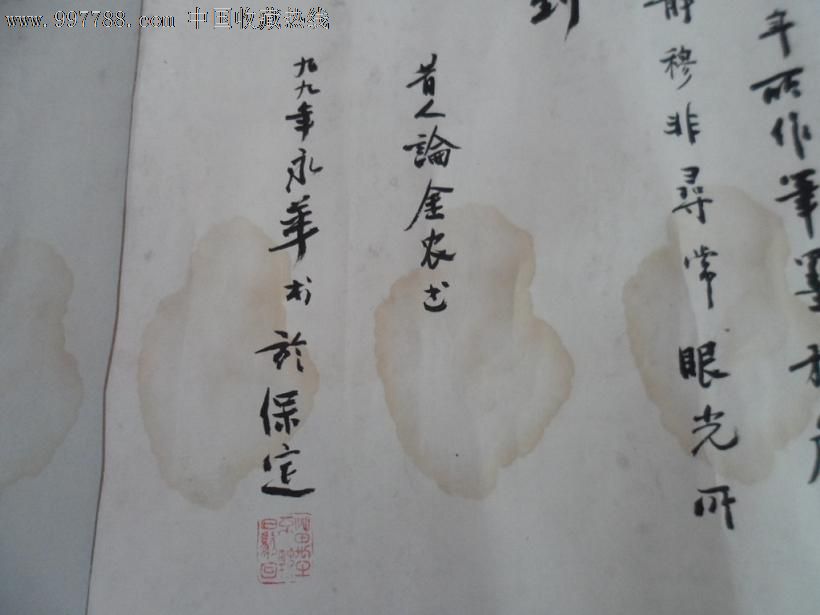 www.997788.com 中国收藏热线
年所作筆墨
静穆非尋常眼光所
到
昔人論金农书
九九年永華 於保定